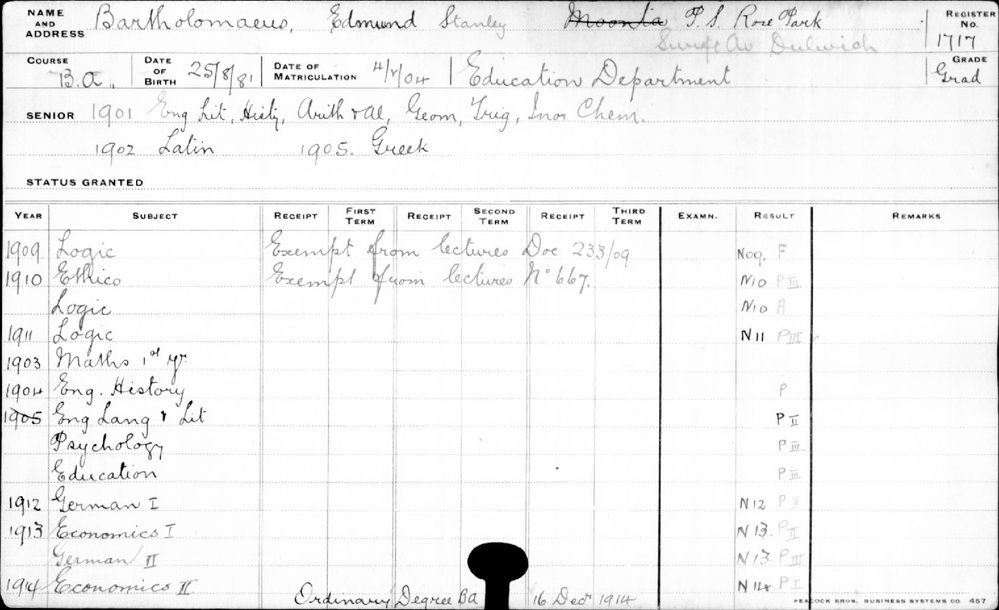 NAME AND ADDRESS Bartholomaeus, Edmund Stanley Moonta P.S. Rose Park REGISTER No. 1717
Swift Av Dulwich
COURSE B.A. DATE OF BIRTH 25/8/81 DATE OF MATRICULATION 4/4/04 Education Department GRADE Grad
SENIOR 1901 Eng Lit, Histy, Arith & Al, Geom, Trig, Inor Chem.
1902 Latin 1905. Greek
STATUS GRANTED
YEAR SUBJECT RECEIPT FIRST TERM RECEIPT SECOND TERM RECEIPT THIRD TERM EXAMN. RESULT REMARKS
1909. Logic Exempt from lectures Doc 233/09 No9. F
1910 Ethics Exempt from lectures No 667. N10 P III
Logic N10 A
1911 Logic N11 P III
1903 Maths 1st yr.
1904 Eng. History P
1905 Eng Lang & Lit P II
Psychology P III
Education P III
1912 German I N12 P II
1913 Economics I N13. P II
German II N13 P III
1914 Economics II N14 P I
Ordinary Degree Ba 16 Decr 1914
PEACOCK BROS. BUSINESS SYSTEMS CO. 457